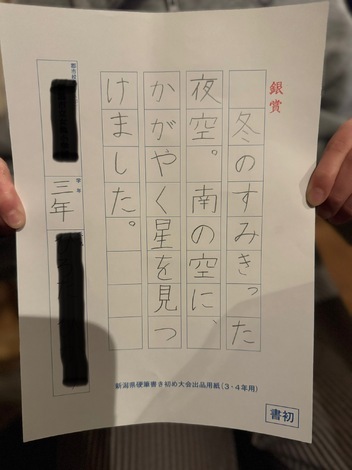 銀賞
冬のすみきった
夜空。南の空に、
かがやく星を見つ
けました。
学年
三年
新潟県硬筆書き初め大会出品用紙(3・4年用)
書初